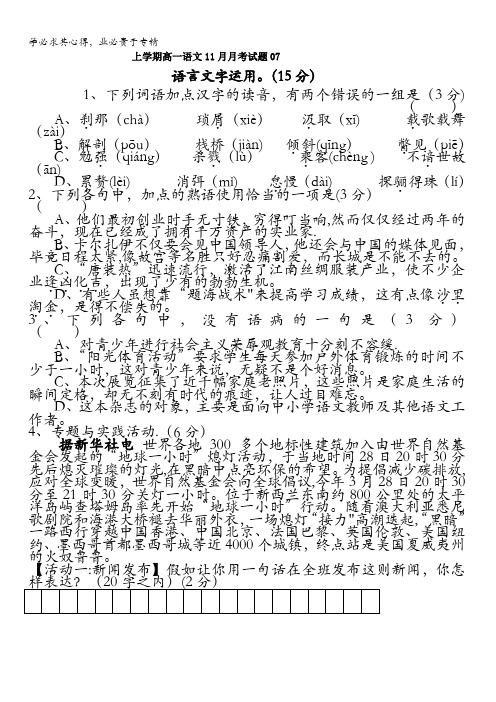 学必求其心得，业必贵于专精
上学期高一语文11月月考试题07
语言文字运用。(15分)
1、下列词语加点汉字的读音，有两个错误的一组是（3分）
（ ）
A、刹那（chà） 琐屑（xiè） 汲取（xī） 载歌载舞
（zài）
B、解剖（pōu） 栈桥（jiàn） 倾斜(qīng） 瞥见（piē）
C、勉强（qiáng） 杀戮（lù） 乘客(chèng ) 不谙世故
（ān)
D、累赘(lèi) 消弭（mǐ） 怠慢（dài） 探骊得珠（lí）
2、下列各句中，加点的熟语使用恰当的一项是(3分）
（ ）
A、他们最初创业时手无寸铁，穷得叮当响,然而仅仅经过两年的
奋斗，现在已经成了拥有千万资产的实业家.
B、卡尔扎伊不仅要会见中国领导人,他还会与中国的媒体见面，
毕竟日程太紧,像故宫等名胜只好忍痛割爱，而长城是不能不去的。
C、“唐装热”迅速流行，激活了江南丝绸服装产业，使不少企
业逢凶化吉，出现了少有的勃勃生机。
D、有些人虽想靠“题海战术"来提高学习成绩，这有点像沙里
淘金，是得不偿失的。
3、下列各句中，没有语病的一句是（3分）
（ ）
A、对青少年进行社会主义荣辱观教育十分刻不容缓.
B、“阳光体育活动”要求学生每天参加户外体育锻炼的时间不
少于一小时，这对青少年来说，无疑不是个好消息。
C、本次展览征集了近千幅家庭老照片，这些照片是家庭生活的
瞬间定格，却无不刻有时代的痕迹，让人过目难忘。
D、这本杂志的对象，主要是面向中小学语文教师及其他语文工
作者。
4、专题与实践活动.（6分）
据新华社电 世界各地300多个地标性建筑加入由世界自然基
金会发起的“地球一小时”熄灯活动，于当地时间28日20时30分
先后熄灭璀璨的灯光,在黑暗中点亮环保的希望。为提倡减少碳排放,
应对全球变暖，世界自然基金会向全球倡议,今年3月28日20时30
分至21时30分关灯一小时。位于新西兰东南约800公里处的太平
洋岛屿查塔姆岛率先开始“地球一小时”行动。随着澳大利亚悉尼
歌剧院和海港大桥褪去华丽外衣,一场熄灯“接力"高潮迭起,“黑暗”
一路西行穿越中国香港、中国北京、法国巴黎、英国伦敦、美国纽
约、墨西哥首都墨西哥城等近4000个城镇，终点站是美国夏威夷州
的火奴鲁鲁。
【活动一:新闻发布】假如让你用一句话在全班发布这则新闻，你怎
样表达？（20字之内）(2分）